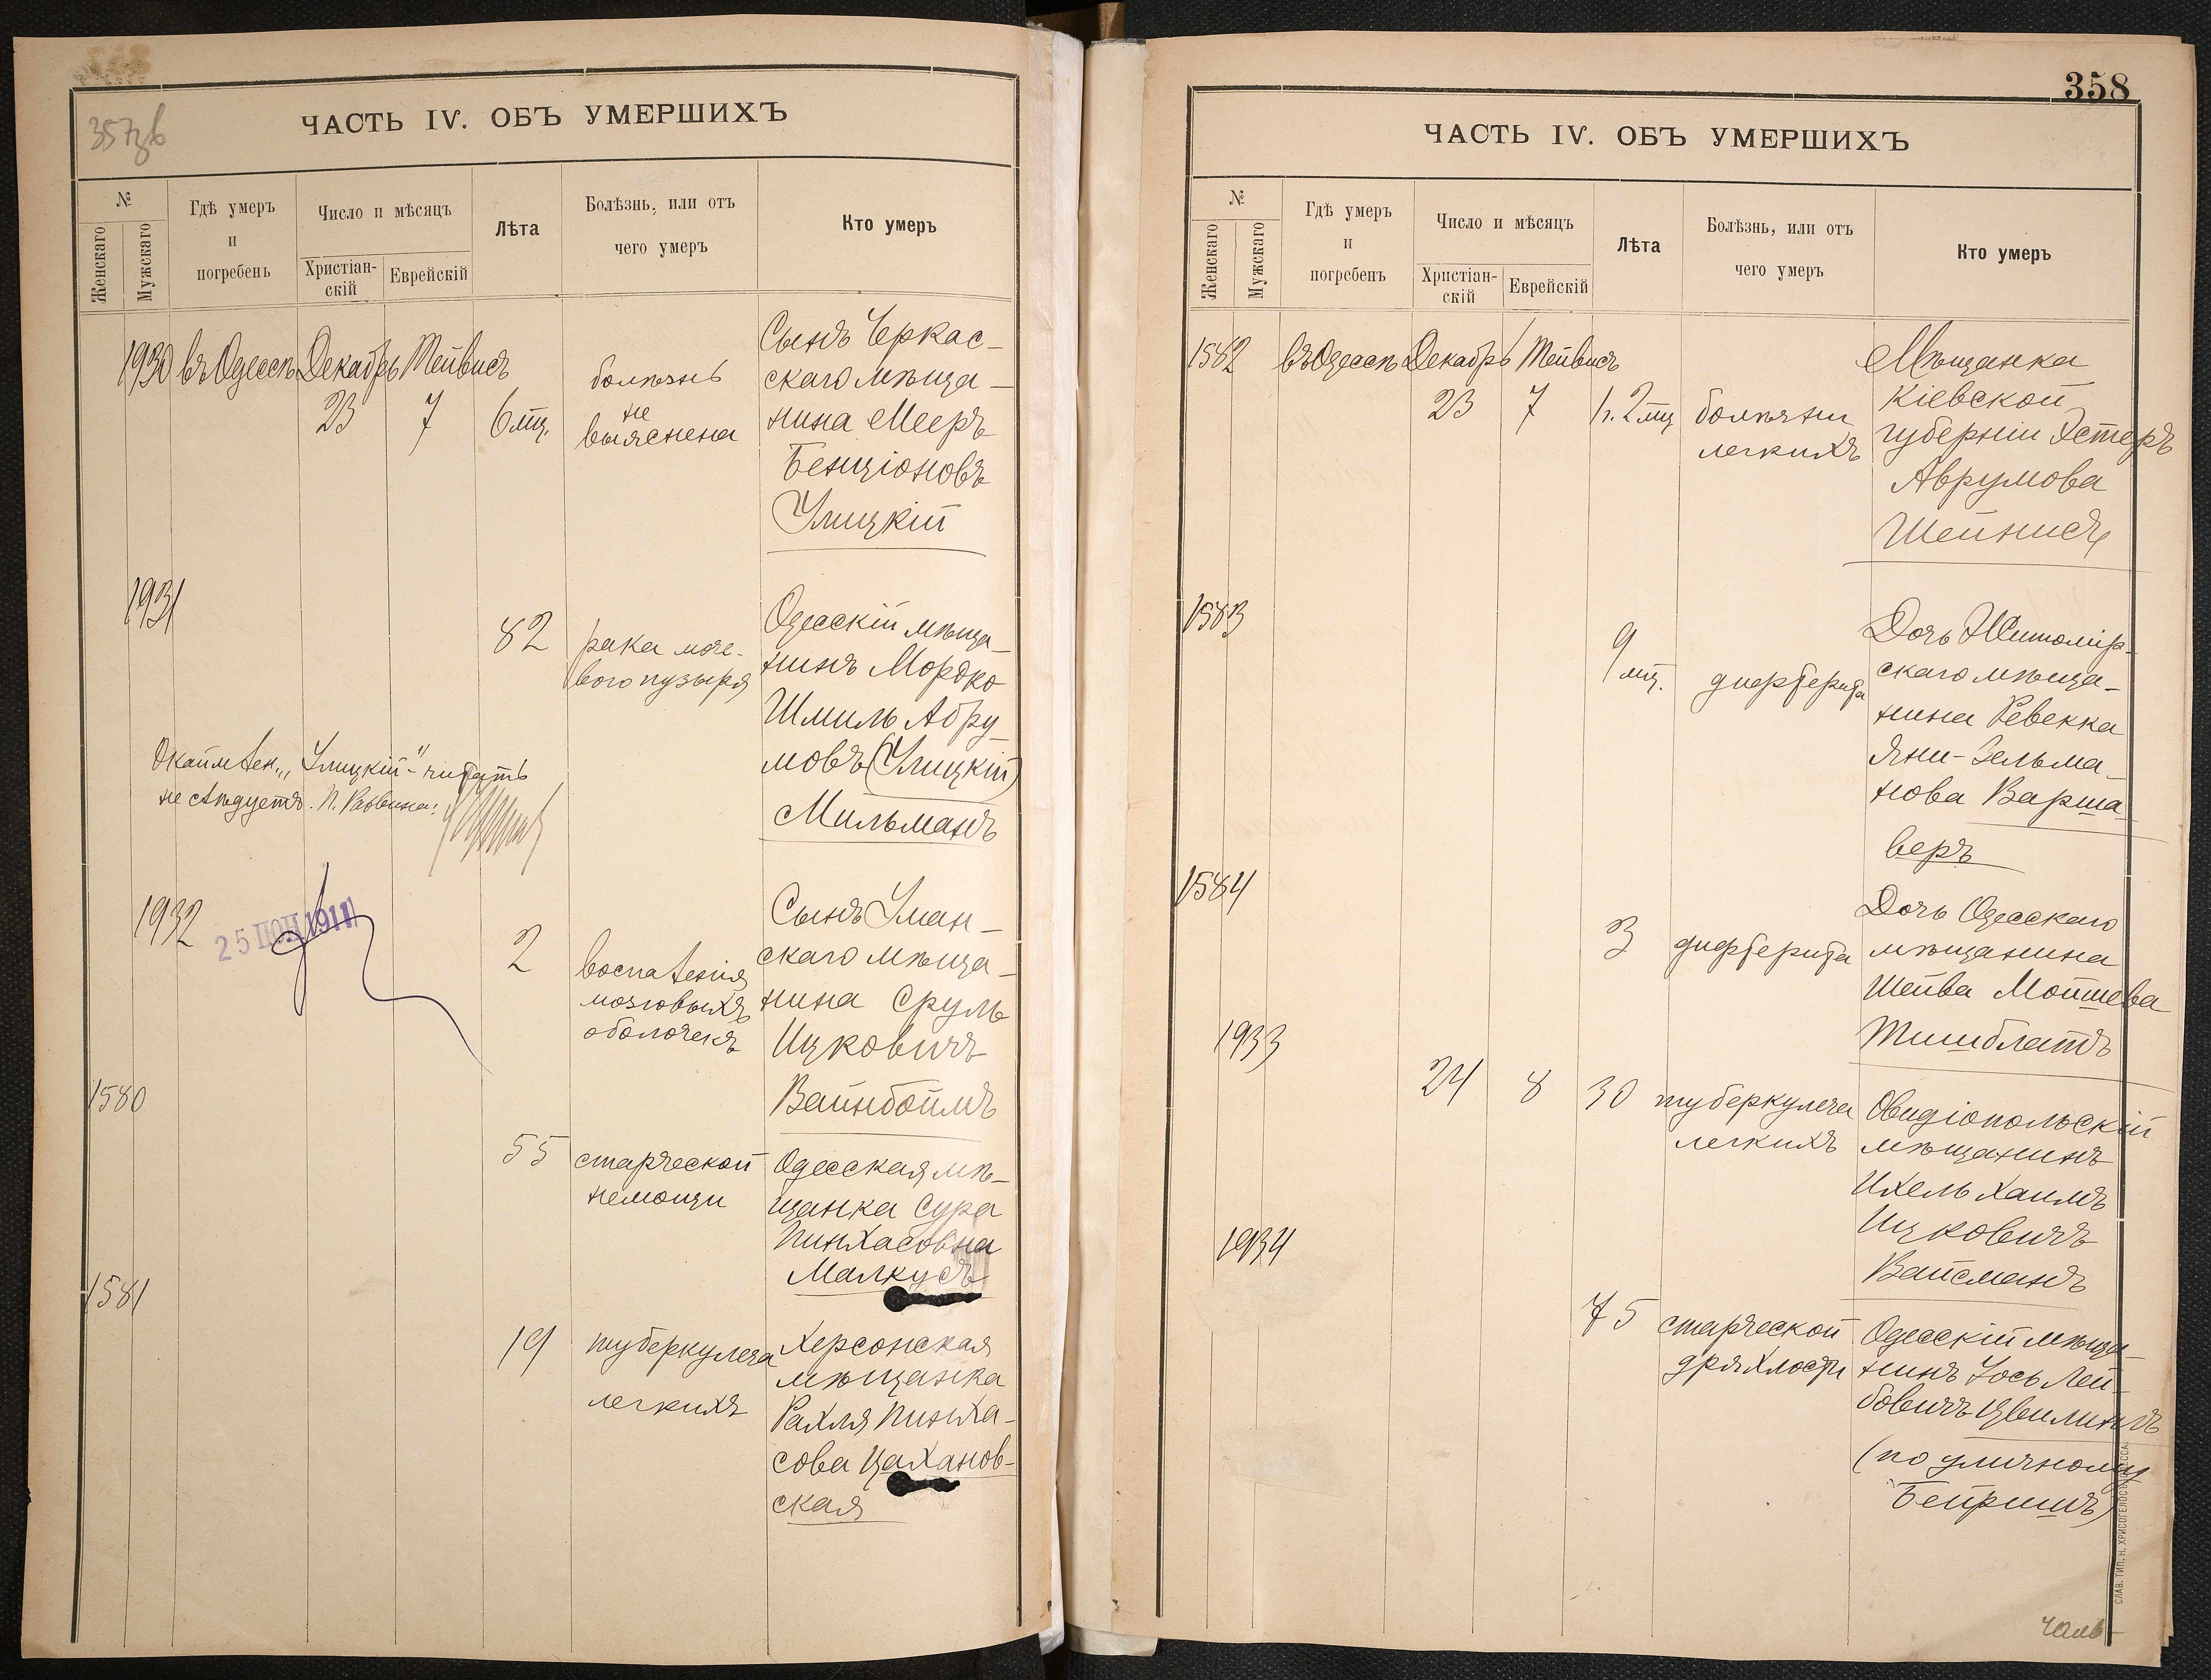 357об
ЧАСТЬ IV. ОБЪ УМЕРШИХЪ
№
Женскаго
Мужскаго
Гдѣ умеръ
и
погребень
Число и мѣсяцъ
Христіан-
скій
Еврейскій
Лѣта
Болѣзнь, или отъ
чего умеръ
Кто умеръ
1930 въ Одессѣ Декабрь Тейвисъ
23 7 6 мц.
болѣзнь
не
выяснена
Сынъ Черкас-
скаго мѣща-
нина Мееръ
Бенціоновъ
Улицкій
1931
82
рака моче-
вого пузыря
Одесскій мѣща-
нинъ Мордко
Шмиль Абру-
мовъ (Улицкій)
Мильманъ
"Улицкій" читать
не слѣдуетъ.
1932
25 ІЮН 1911
2
воспаленія
мозговыхъ
оболочекъ
Сынъ Уман-
скаго мѣща-
нина Сруль
Ицковичъ
Вайнбоймъ
1580
55
старческой
немощи
Одесская мѣ-
щанка Сура
Пинхасовна
Малкусъ
1581
19
туберкулеза
легкихъ
Херсонская
мѣщанка
Рахля Пинха-
сова Цаханов-
ская
358
ЧАСТЬ IV. ОБЪ УМЕРШИХЪ
№
Женскаго
Мужскаго
Гдѣ умеръ
и
погребенъ
Число и мѣсяцъ
Христіан-
скій
Еврейскій
Лѣта
Болѣзнь, или отъ
чего умеръ
Кто умеръ
1582 въ Одессѣ Декабрь Тейвисъ
23 7 1 г. 2 мц
болѣзни
легкихъ
Мѣщанка
Кіевской
губерніи Эстеръ
Аврумова
Шейнисъ
1583
9
мц.
дифтерита
Дочь Житомір-
скаго мѣща-
нина Ревекка
Яни-Зельма-
нова Варша-
веръ
1584
3
дифтерита
Дочь Одесскаго
мѣщанина
Шейва Мойшева
Тишблатъ
1933
24 8 30
туберкулеза
легкихъ
Овидіопольскій
мѣщанинъ
Ихель Хаимъ
Ицковичъ
Вайсманъ
1934
75
старческой
дряхлости
Одесскій мѣща-
нинъ Іось Лей-
бовичъ Цвилингъ
(по уличному
Бейришъ)
СЛАВ. ТИП. Н. ХРИСОГЕЛОСЪ ОДЕССА.